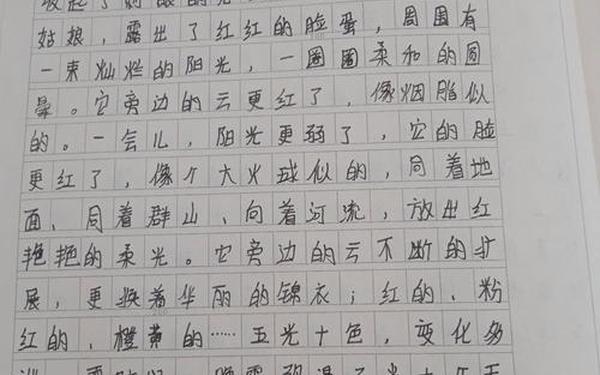 收起了刺眼的光
姑娘，露出了红红的脸蛋，周围有
一束灿烂的阳光，一圈圈柔和的圆
晕。它旁边的云更红了，像烟脂似
的。一会儿，阳光更弱了，它的脸
更红了，像个大火球似的，向着地
面、向着群山、向着河流，放出红
艳艳的柔光。它旁边的云不断的扩
展，更换着华丽的锦衣；红的、粉
红的、橙黄的……五光十色，变化多